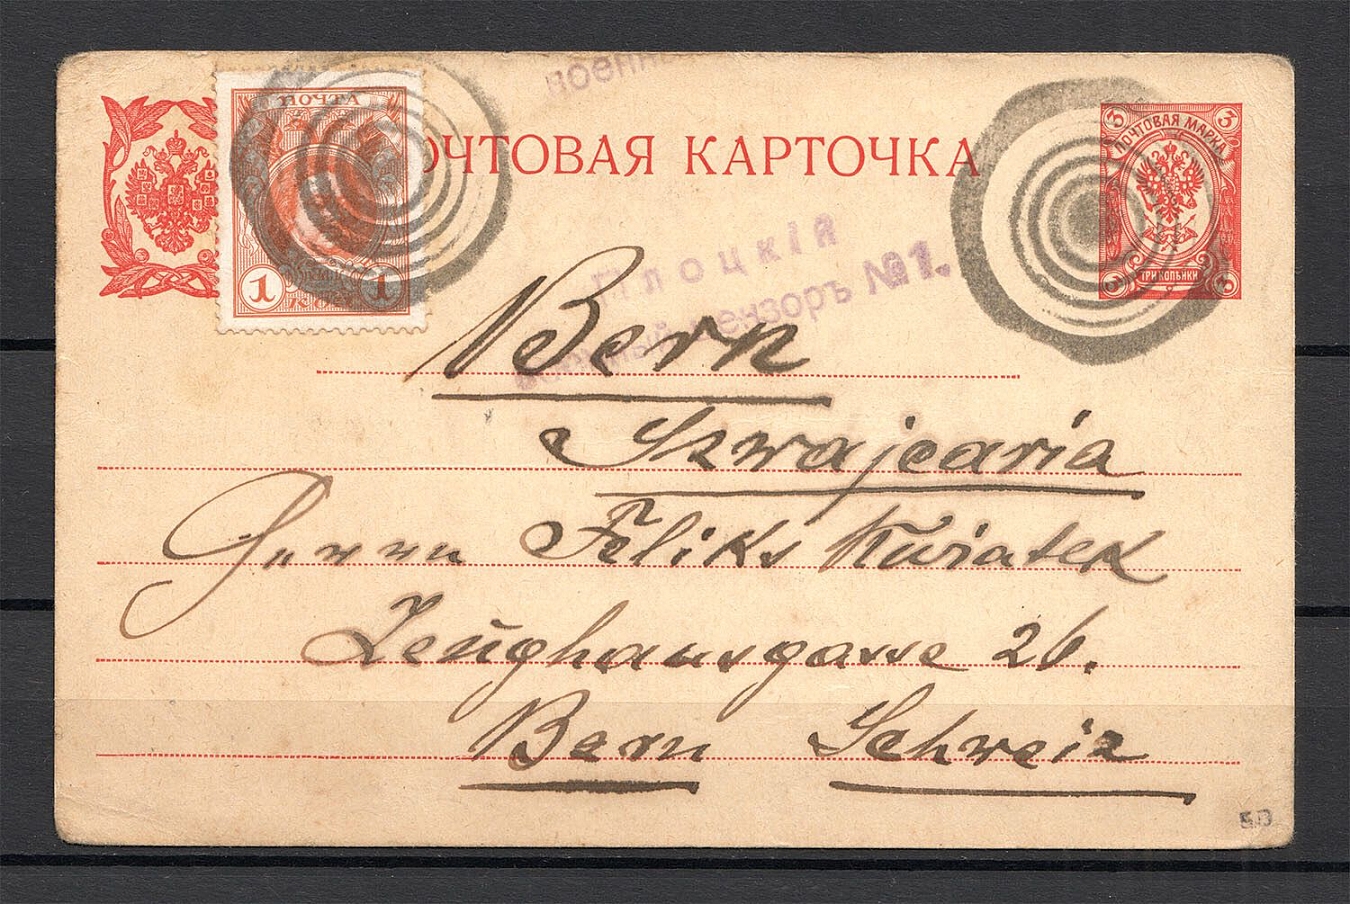 военны
ПОЧТА
1 1
КОП
ОЧТОВАЯ КАРТОЧКА
3 3
ПОЧТОВАЯ МАРКА
ТРИ КОПѢЙКИ
3 3
Плоцкій
Военный цензоръ №1.
Bern
Szwajcaria
Herrn Feliks Kwiatek
Zeughausgasse 26.
Bern Schweiz